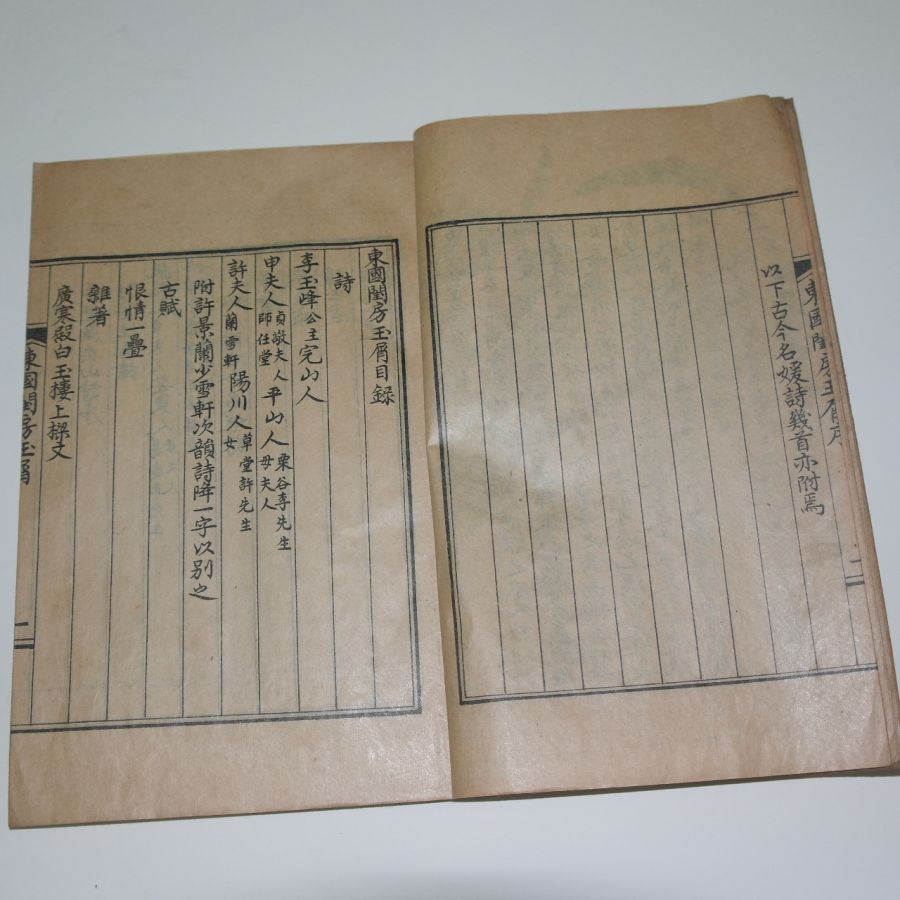 東國閨房玉屑
以下古今名媛詩幾首亦附焉
二
東國閨房玉屑目録
詩
李玉峰公主完山人
申夫人貞敬夫人師任堂平山人栗谷李先生母夫人
許夫人蘭雪軒陽川人草堂許先生女
附許景蘭少雪軒次韻詩降一字以別之
古賦
恨情一疊
雜著
廣寒殿白玉樓上樑文
東國閨房玉屑
一